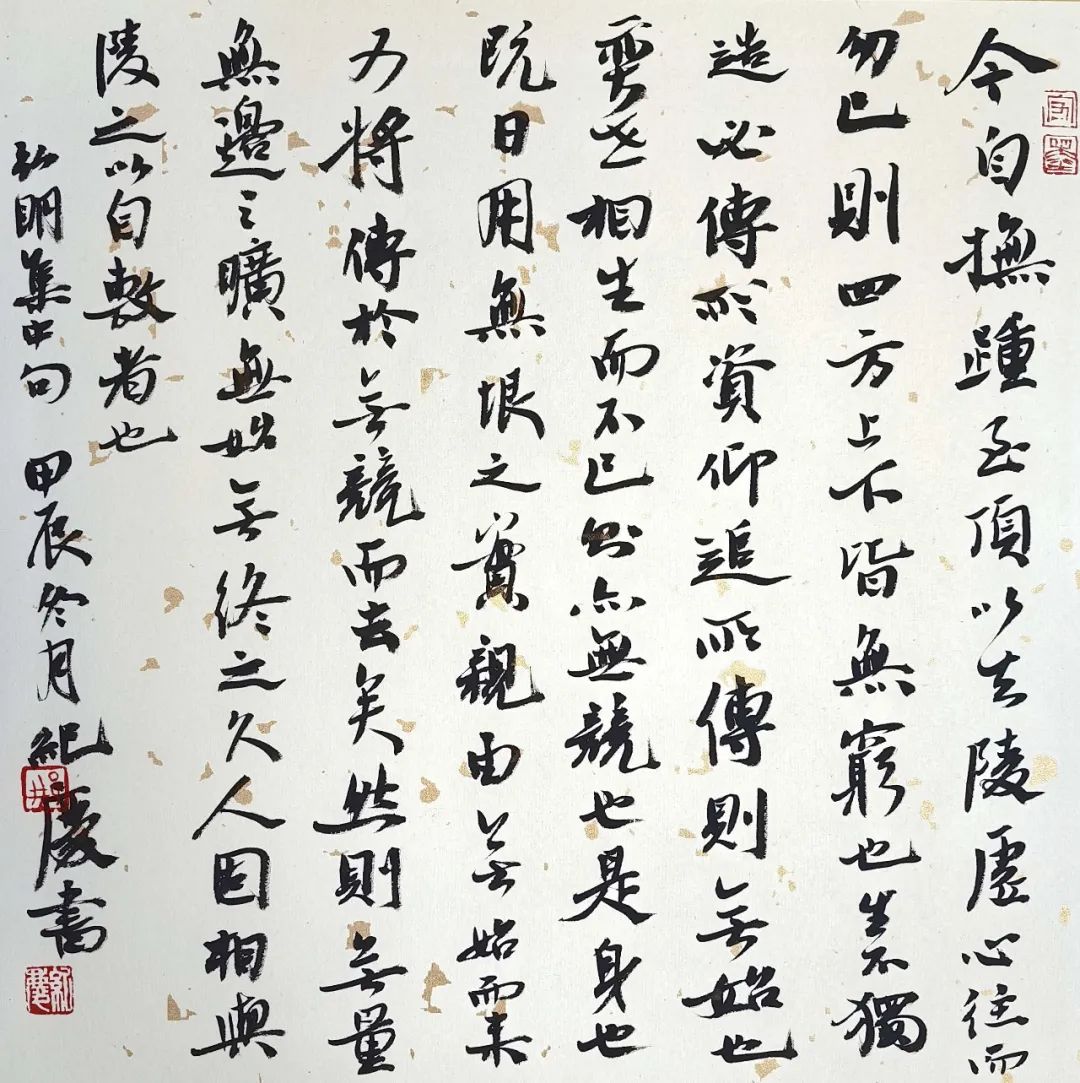 今自撫踵至頂以去陵虛心往而
勿已則四方上下皆無窮也生不獨
造必傳所資仰追所傳則無始也
奕世相生而不已則亦無競也是身也
既日用無垠之實親由無始而来
又將傳於無競而去矣然則無量
無邊之曠無始無終之久人固相與
陵之以自敷者也
弘明集中句 甲辰冬月 紀慶書